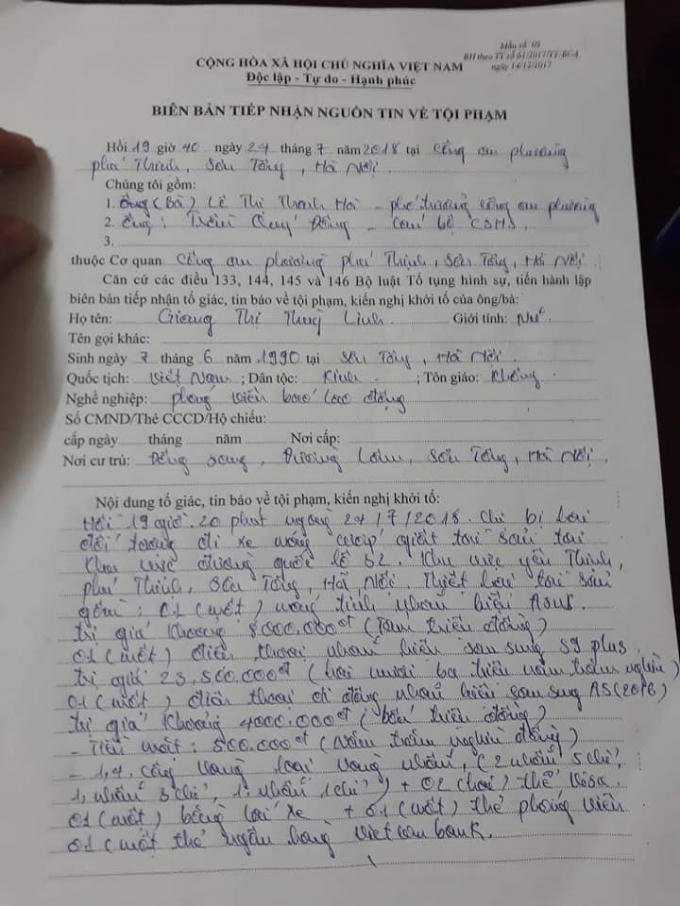 Mẫu số: 03
BH theo TT số 61/2017/TT-BCA
ngày 14/12/2017
CỘNG HÒA XÃ HỘI CHỦ NGHĨA VIỆT NAM
Độc lập - Tự do - Hạnh phúc
BIÊN BẢN TIẾP NHẬN NGUỒN TIN VỀ TỘI PHẠM
Hồi 19 giờ 40 ngày 24 tháng 7 năm 2018 tại Công an phường
phú Thịnh, Sơn Tây, Hà Nội
Chúng tôi gồm:
1. Ông (Bà) Lê Thị Thanh Hà - phó trưởng công an phường
2. Ông: Trần Quý Đông - cán bộ CSHS.
3.
thuộc Cơ quan Công an phường phú Thịnh, Sơn Tây, Hà Nội
Căn cứ các điều 133, 144, 145 và 146 Bộ luật Tố tụng hình sự, tiến hành lập
biên bản tiếp nhận tố giác, tin báo về tội phạm, kiến nghị khởi tố của ông/bà:
Họ tên: Giang Thị Thuỳ Linh Giới tính: Nữ
Tên gọi khác:
Sinh ngày 7 tháng 6 năm 1990 tại Sơn Tây, Hà Nội
Quốc tịch: Việt Nam; Dân tộc: Kinh; Tôn giáo: Không
Nghề nghiệp: phóng viên báo lao động
Số CMND/Thẻ CCCD/Hộ chiếu:
cấp ngày tháng năm Nơi cấp:
Nơi cư trú: Đông Sàng, Đường Lâm, Sơn Tây, Hà Nội
Nội dung tố giác, tin báo về tội phạm, kiến nghị khởi tố:
Hồi 19 giờ 20 phút ngày 24/7/2018. Chị bị hai
đối tượng đi xe máy cướp giật tài sản tại
khu vực đường quốc lộ 32. Khu vực yên Thịnh,
phú Thịnh, Sơn Tây, Hà Nội. Thiệt hại tài sản
gồm: 01 (một) máy tính nhãn hiệu Asus.
trị giá khoảng 8000.000đ (tám triệu đồng)
01 (một) điện thoại nhãn hiệu samsung S9 plus.
trị giá 23.500.000đ (hai mươi ba triệu năm trăm nghìn)
01 (một) điện thoại di động nhãn hiệu samsung A5 (2016)
trị giá khoảng 4000.000đ (bốn triệu đồng)
- Tiền mặt: 500.000đ (năm trăm nghìn đồng)
- 1,4 cây vàng loại vàng nhẫn, (2 nhẫn 5 chỉ,
1 nhẫn 3 chỉ, 1 nhẫn 1 chỉ) + 02 (hai) thẻ visa.
01 (một) bằng lái xe + 01 (một) thẻ phóng viên
01 (một thẻ ngân hàng vietcombank.